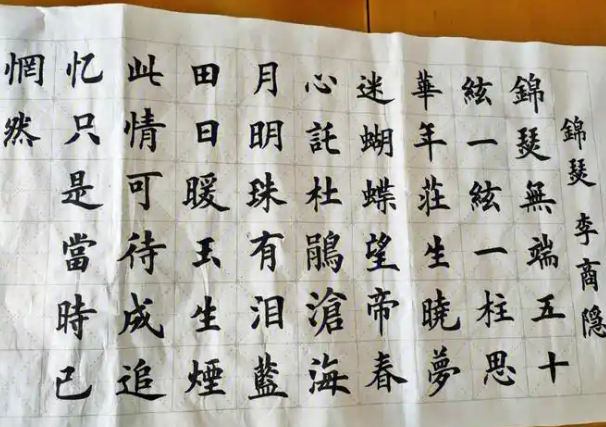 錦瑟 李商隐
錦瑟無端五十
絃一絃一柱思
華年莊生曉夢
迷蝴蝶望帝春
心託杜鵑滄海
月明珠有泪藍
田日暖玉生煙
此情可待成追
忆只是當時已
惘然